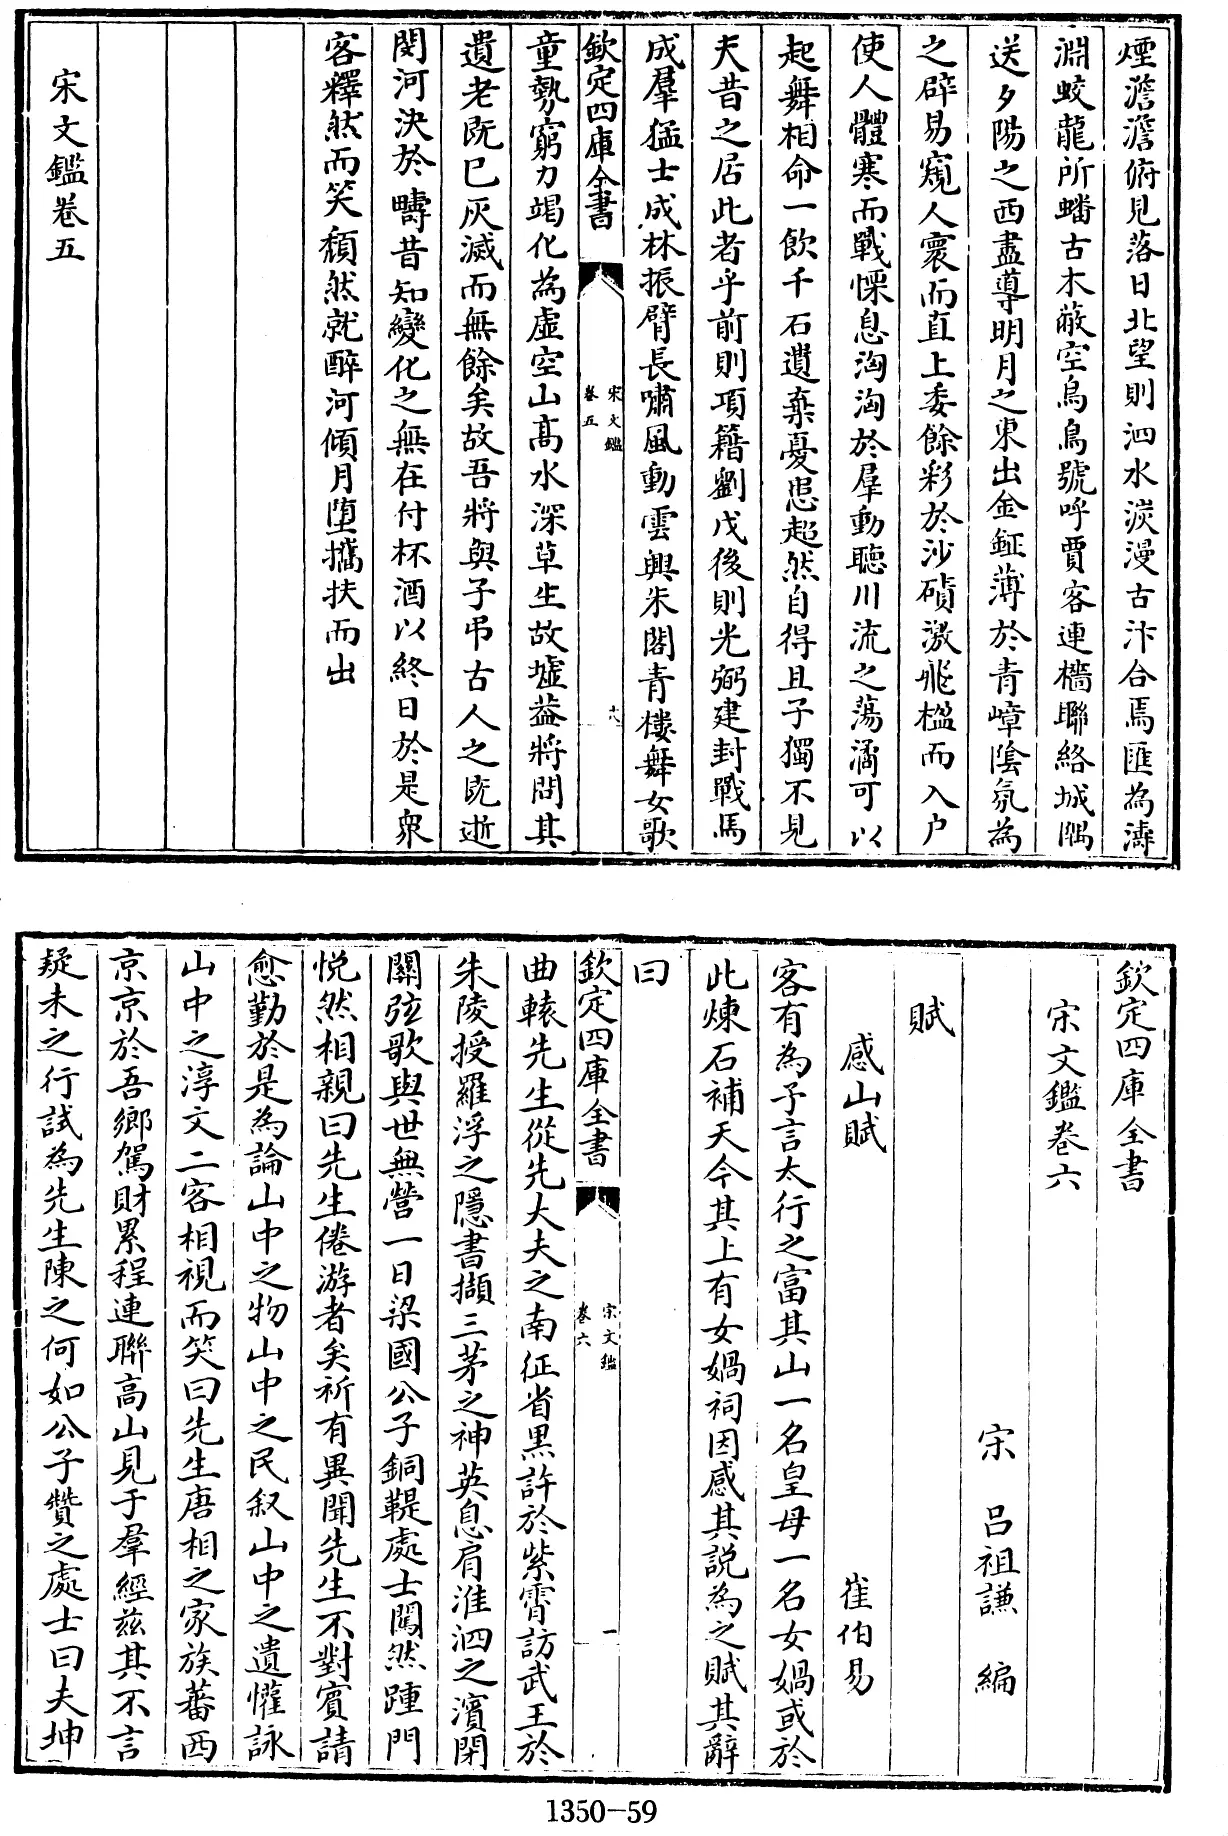 煙澹澹俯見落日北望則泗水淡漫古汴合焉匯為濤
淵蛟龍所蟠古木蔽空烏鳥號呼賈客連檣聯絡城隅
送夕陽之西盡導明月之東出金鉦薄於青嶂陰氛為
之辟易窺人寰而直上委餘彩於沙磧激飛楹而入户
使人體寒而戰慄息洶洶於羣動聽川流之蕩潏可以
起舞相命一飲千石遺棄憂患超然自得且子獨不見
夫昔之居此者乎前則項籍劉戊後則光弼建封戰馬
成羣猛士成林振臂長嘯風動雲興朱閣青樓舞女歌
欽定四庫全書
宋文鑑
卷五
十八
童勢窮力竭化為虛空山髙水深草生故墟葢將問其
遺老既已灰滅而無餘矣故吾將與子弔古人之既逝
閔河決於疇昔知變化之無在付杯酒以終日於是衆
客釋然而笑頹然就醉河傾月墮攜扶而出
宋文鑑卷五
欽定四庫全書
宋文鑑卷六
宋 吕祖謙 編
賦
感山賦 崔伯易
客有為予言太行之富其山一名皇母一名女媧或於
此煉石補天今其上有女媧祠因感其説為之賦其辭
曰
欽定四庫全書
宋文鑑
卷六
一
曲轅先生從先大夫之南征省黒許於紫霄訪武王於
朱陵授羅浮之隱書擷三茅之神英息肩淮泗之濱閉
關弦歌與世無營一日梁國公子銅鞮處士闖然踵門
悦然相親曰先生倦游者矣祈有異聞先生不對賓請
愈勤於是為論山中之物山中之民叙山中之遺懽詠
山中之淳文二客相視而笑曰先生唐相之家族蕃西
京京於吾鄉駕財累程連聯高山見于羣經兹其不言
疑未之行試為先生陳之何如公子贊之處士曰夫坤
1350-59